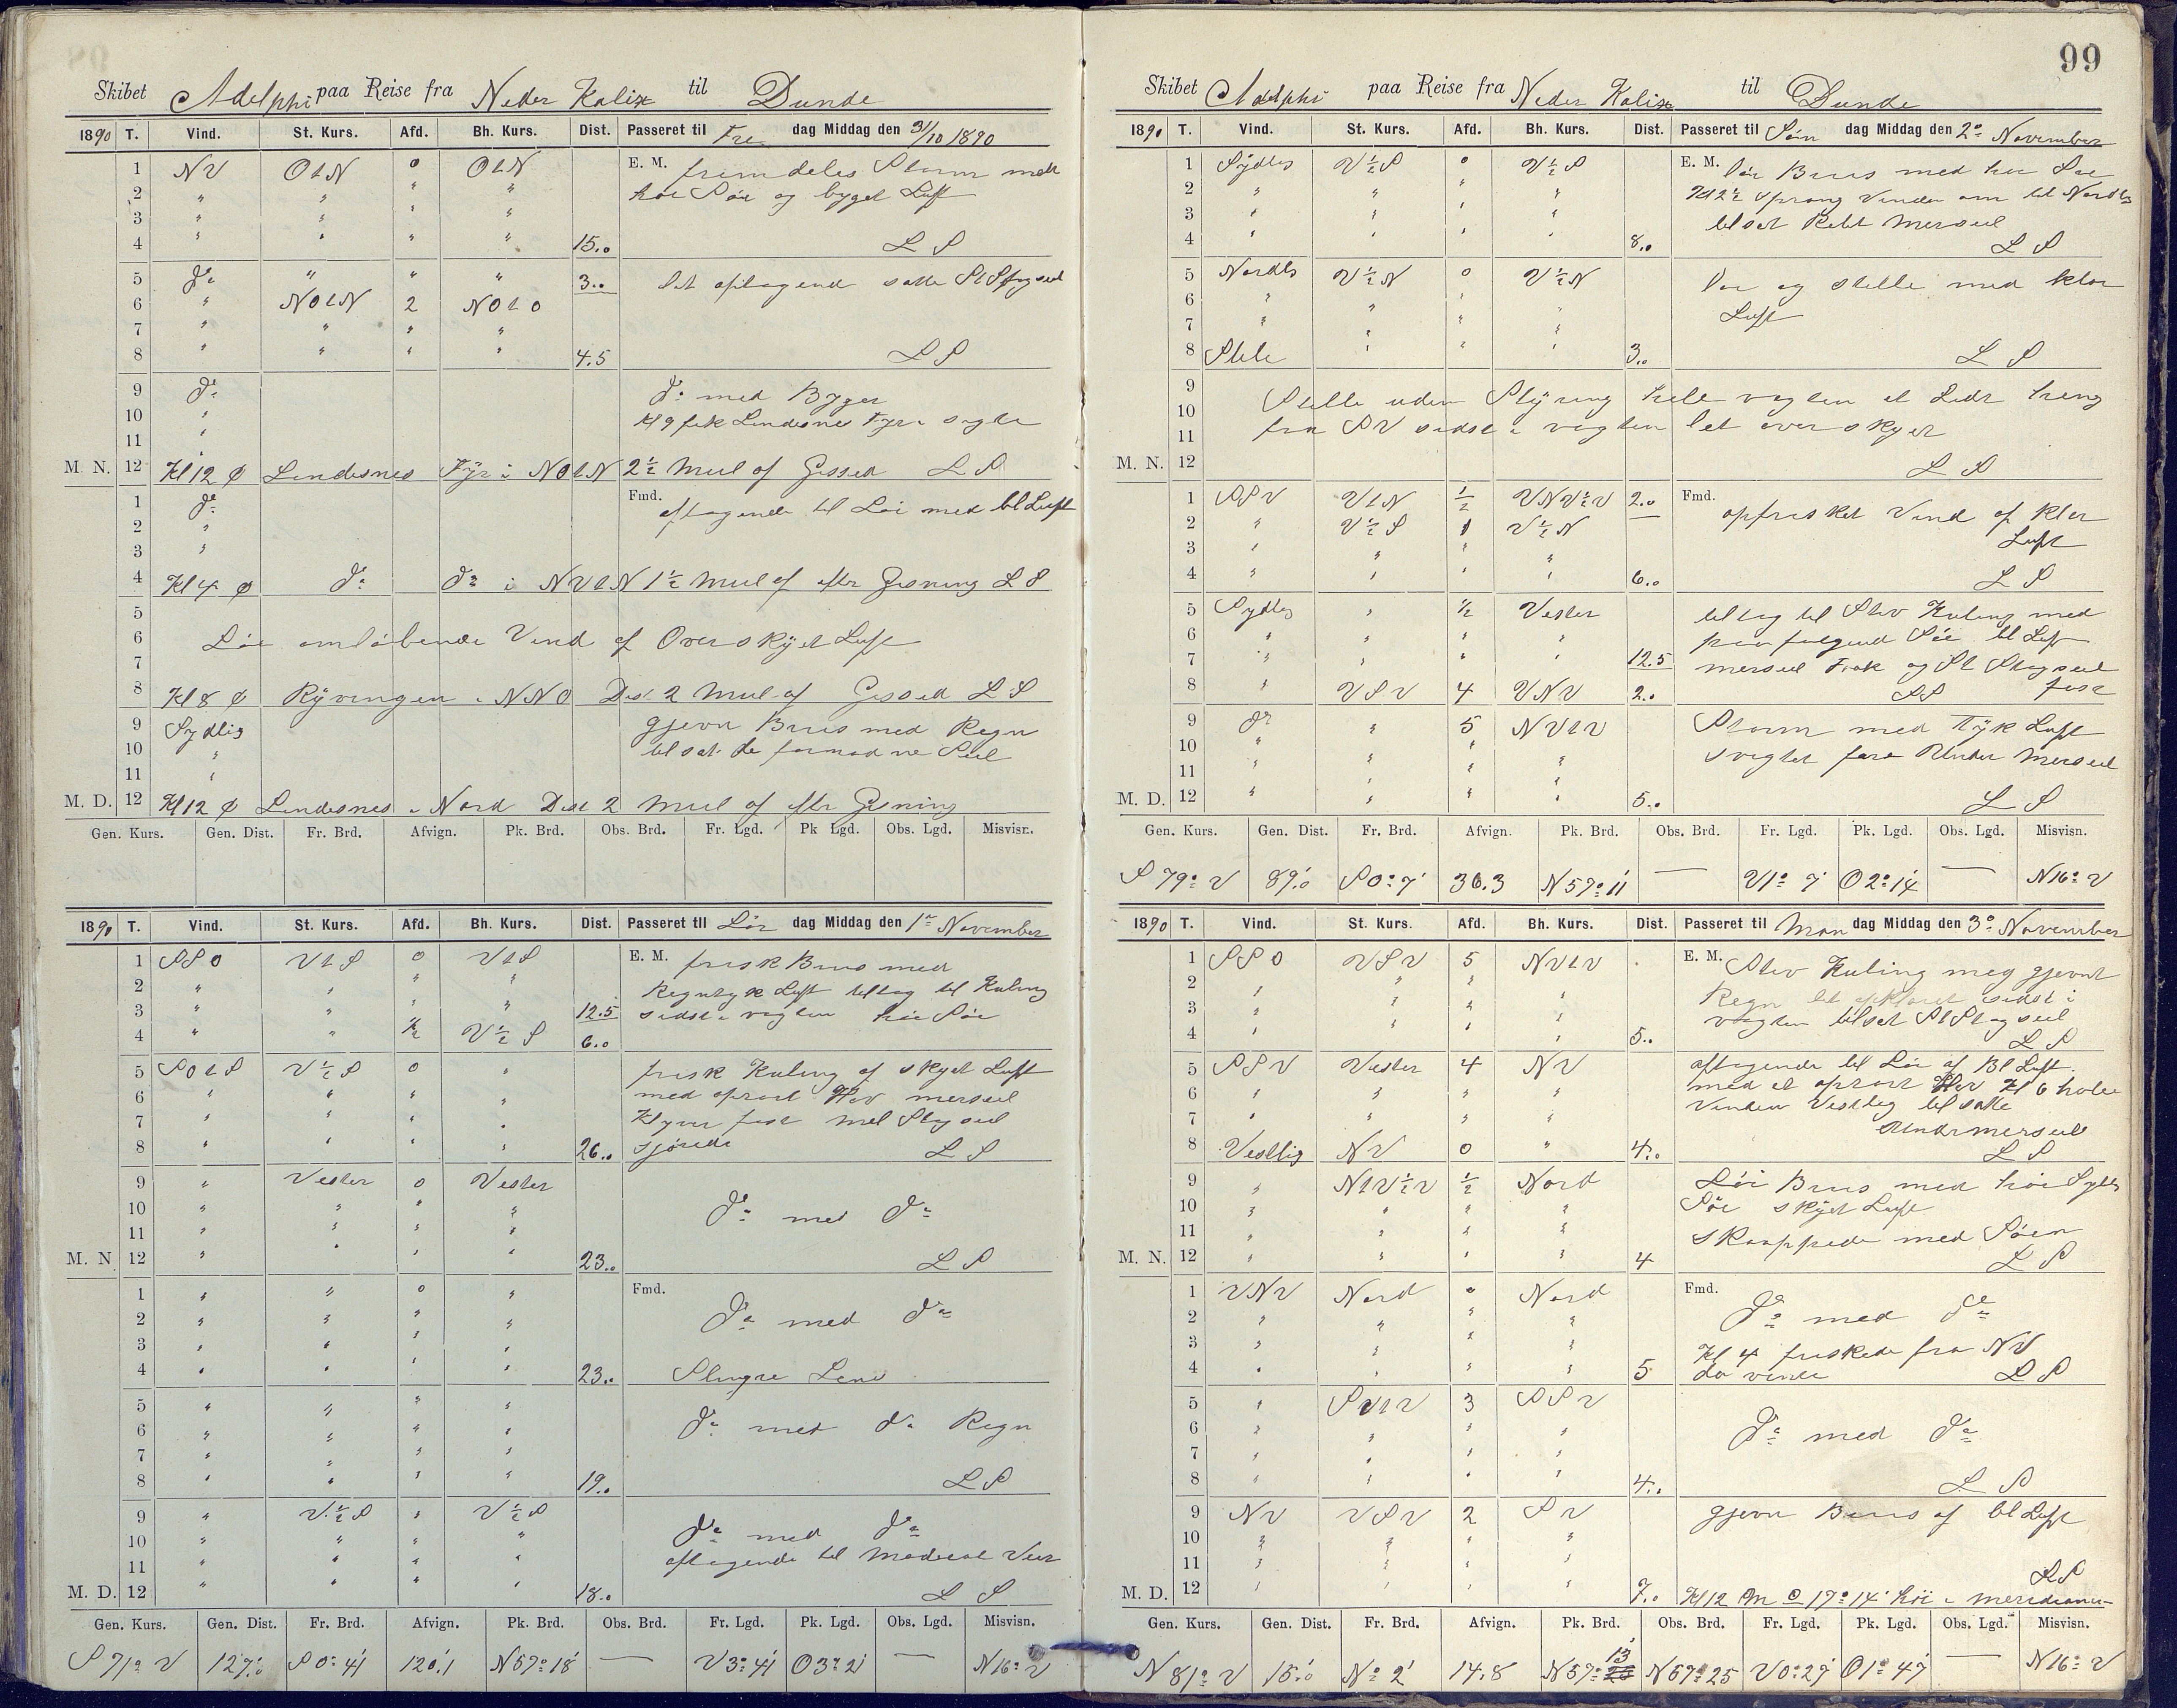 Skibet Adelphi paa Reise fra Neder Kalix til Dunde
1890 T. Vind. St. Kurs. Afd. Bh. Kurs. Dist. Passeret til Fre dag Middag den 31/10 1890
1 NV OtN 0 OtN E. M. fremdeles Storm med
2 " " " " høi Søe og byget Luft
3 " " " "
4 " " " " 15.0 L S
5 do " " " 3.0 Let aftagende satte St Stagseil
6 " NOtN 2 NOtO
7 " " " "
8 " " " " 4.5 L S
9 do do med Byger
10 " Kl 9 fik Lindesnes Fyr i sigte
11 "
M. N. 12 Kl 12 ø Lindesnes Fyr i NOtN 2½ Miil af Gisset L S
1 do Fmd. aftagende til Løi med bl Luft
2 "
3 "
4 Kl 4 ø do do i NVtN 1½ Miil af efter Gisning L S
5
6 Løi omløbende Vind af Overskyet Luft
7
8 Kl 8 ø Ryvingen i NNO Dist 2 Miil af Gisset L S
9 Sydlig gjevn Bris med Regn
10 " tilsat de formodne Seil
11 "
M. D. 12 Kl 12 ø Lindesnes i Nord Dist 2 Miil af efter Gisning
Gen. Kurs. Gen. Dist. Fr. Brd. Afvign. Pk. Brd. Obs. Brd. Fr. Lgd. Pk Lgd. Obs. Lgd. Misvisn.
1890 T. Vind. St. Kurs. Afd. Bh. Kurs. Dist. Passeret til Lør dag Middag den 1ste November
1 SSO VtS 0 VtS E. M. frisk Bris med
2 " " " " Regntyk Luft tiltog til Kuling
3 " " " " 12.5 sidst i vagten høi Søe
4 " " ½ V½S 6.0
5 SOtS V½S 0 " frisk Kuling af skyet Luft
6 " " " " med oprørt Hav merseil
7 " " " " Klyver fast mel Stagseil
8 " " " " 26.0 L S
9 " Vester 0 Vester
10 " " " " do med do
11 " " " "
M. N 12 " " " " 23.0 L S
1 " " 0 " Fmd.
2 " " " " do med do
3 " " " "
4 " " " " 23.0 Slingre Lens
5 " " " "
6 " " " " do med do Regn
7 " " " "
8 " " " " 19.0 L S
9 " V½S " V½S
10 " " " " do med do
11 " " " " aftagende til Moderat Veir
M. D. 12 " " " " 18.0 L S
Gen. Kurs. Gen. Dist. Fr. Brd. Afvign. Pk. Brd. Obs. Brd. Fr. Lgd. Pk. Lgd. Obs. Lgd. Misvisn.
S 71° V 127.0 S 0° 41' 120.1 N 57° 18' — V 3° 41' O 3° 21' — N 16° V
99
Skibet Adelphi paa Reise fra Neder Kalix til Dunde
1890 T. Vind. St. Kurs. Afd. Bh. Kurs. Dist. Passeret til Søn dag Middag den 2den November
1 Sydlig V½S 0 V½S E. M. Løi Bris med høi Søe
2 " " " " Kl 2½ sprang Vinden om til Nordlig
3 " " " " tilsat Rebt Merseil
4 " " " " 8.0 L S
5 Nordlig V½N 0 V½N Løi og stille med klar
6 " " " " Luft
7 " " " "
8 Stille " " " 3.0 L S
9 Stille uden Styring hele vagten et Lidt træng
10
11 fra SV sidst i vagten let overskyet
M. N. 12 L S
1 SSV VtN ½ VNV½V 2.0 Fmd. opfrisket Vind af klar
2 " V½S 1 V½N Luft
3 " " " "
4 " " " " 6.0 L S
5 Sydlig " ½ Vester tiltog til Stiv Kuling med
6 " " " " paafølgend Søe bl Luft
7 " " " " 12.5 merseil Fok og St Stagseil
8 " VSV 4 VNV 2.0 L S fast
9 do " 5 NVtV Storm med Tyk Luft
10 " " " " svigtet fore Under Merseil
11 " " " "
M. D. 12 " " " " 5.0 L S
Gen. Kurs. Gen. Dist. Fr. Brd. Afvign. Pk. Brd. Obs. Brd. Fr. Lgd. Pk. Lgd. Obs. Lgd. Misvisn.
S 79° V 89.0 S 0° 7' 36.3 N 57° 11' — V 1° 7' O 2° 14' — N 16° V
1890 T. Vind. St. Kurs. Afd. Bh. Kurs. Dist. Passeret til Man dag Middag den 3die November
1 SSO VSV 5 NVtV E. M. Stiv Kuling meg gjevnt
2 " " " " Regn let opklaret sidst i
3 " " " " vagten tilsat St Stagseil
4 " " " " 5.0 L S
5 SSV Vester 4 NV aftagende til Løi af Bl Luft
6 " " " " med et oprørt Hav Kl 6 holte
7 " " " " Vinden Vestlig tilsatte
Undermerseil
8 Vestlig NV 0 " 4.0 L S
9 " NtV½V ½ Nord Løi Bris med høi Sydlig
10 " " " " Søe skyet Luft
11 " " " " skampfede med Søen
M. N. 12 " " " " 4 L S
1 VNV Nord 0 Nord Fmd.
2 " " " " do med do
3 " " " " Kl 4 friskede fra NV
4 " " " " 5 da vendte L S
5 " SVtV 3 SSV
6 " " " " do med do
7 " " " "
8 " " " " 4.0 L S
9 NV VSV 2 SV gjevn Bris af bl Luft
10 " " " "
11 " " " " L S
M. D. 12 " " " " 7.0 Kl 12 Om 17° 14' høi i meridianen
Gen. Kurs. Gen. Dist. Fr. Brd. Afvign. Pk. Brd. Obs. Brd. Fr. Lgd. Pk. Lgd. Obs. Lgd. Misvisn.
N 81° V 15.0 N 2' 14.8 N 57° 13' N 57° 25 V 0° 27' O 1° 47' — N 16° V